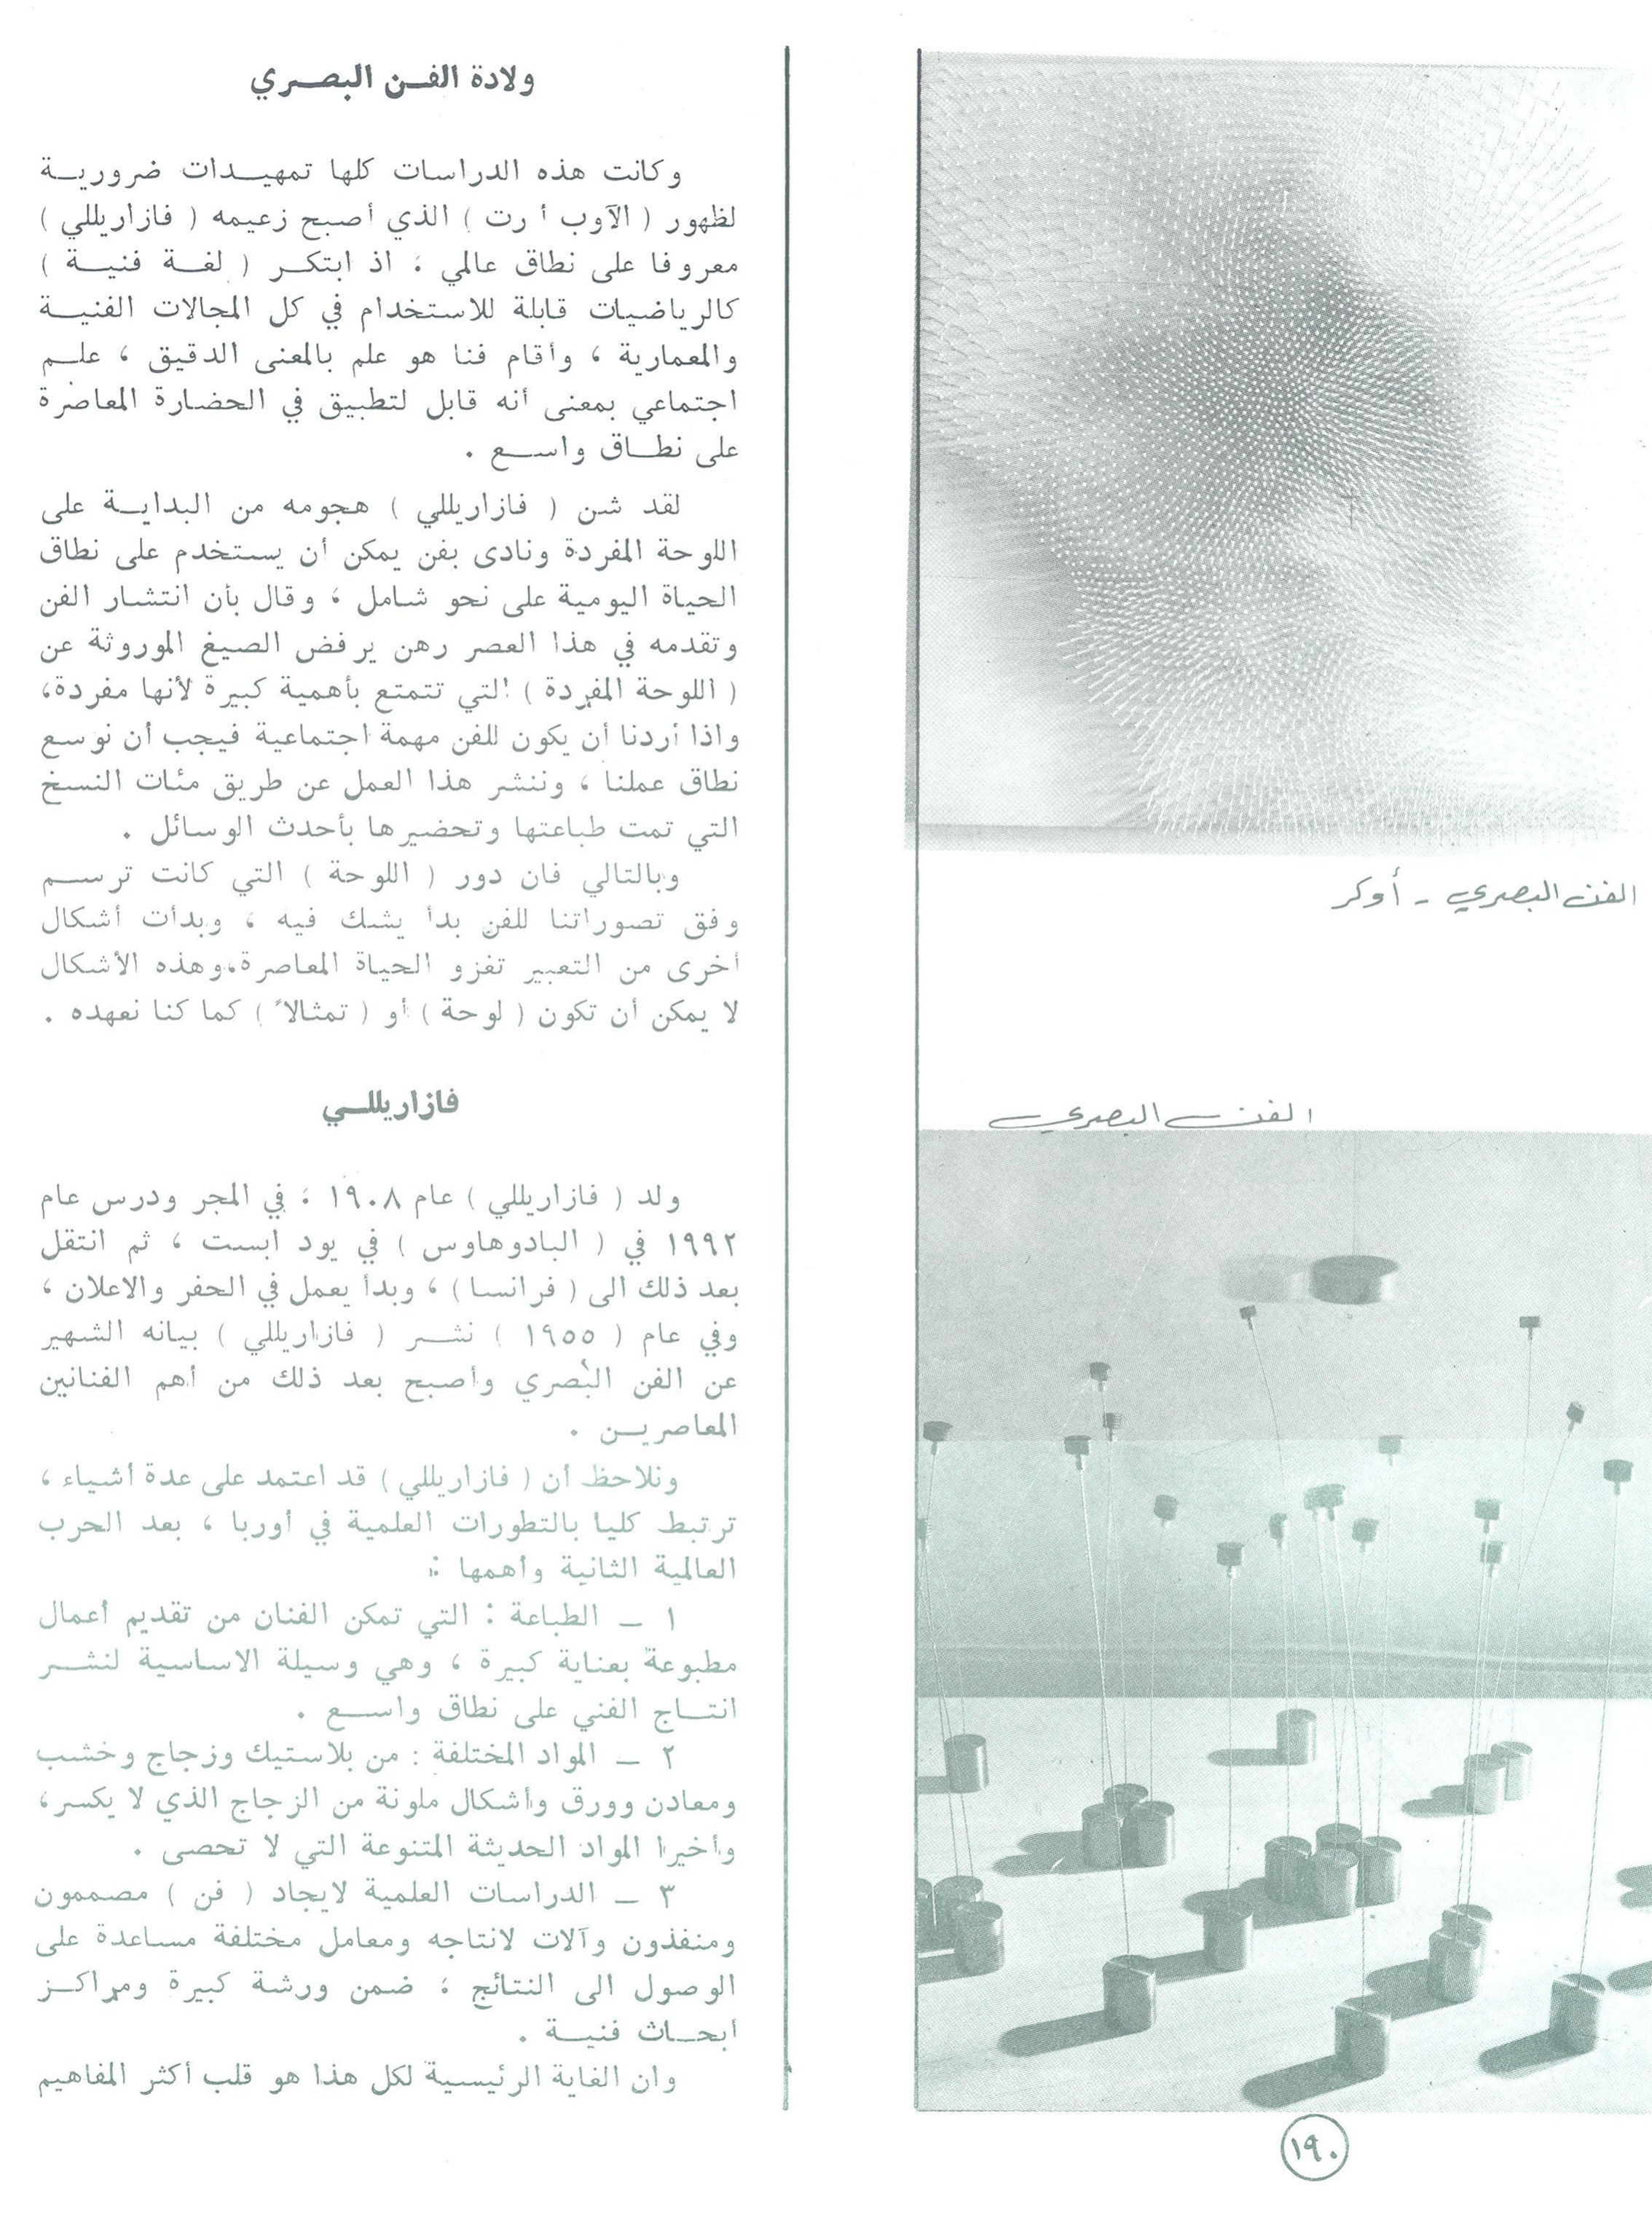 ولادة الفـن البصـري
وكانت هذه الدراسات كلها تمهيـدات ضروريـة
لظهور ( الآوب أرت ) الذي أصبح زعيمه ( فازاريللي )
معروفا على نطاق عالمي ، اذ ابتكـر ( لغـة فنيـة )
كالرياضيات قابلة للاستخدام في كل المجالات الفنيـة
والمعمارية ، وأقام فنا هو علم بالمعنى الدقيق ، علـم
اجتماعي بمعنى أنه قابل لتطبيق في الحضارة المعاصرة
على نطـاق واسـع .
لقد شن ( فازاريللي ) هجومه من البدايـة على
اللوحة المفردة ونادى بفن يمكن أن يستخدم على نطاق
الحياة اليومية على نحو شامل ، وقال بأن انتشار الفن
وتقدمه في هذا العصر رهن يرفض الصيغ الموروثة عن
( اللوحة المفردة ) التي تتمتع بأهمية كبيرة لأنها مفردة،
واذا أردنا أن يكون للفن مهمة اجتماعية فيجب أن نوسع
نطاق عملنا ، وننشر هذا العمل عن طريق مئات النسخ
التي تمت طباعتها وتحضيرها بأحدث الوسائل .
وبالتالي فان دور ( اللوحة ) التي كانت ترسـم
وفق تصوراتنا للفن بدأ يشك فيه ، وبدأت أشكال
أخرى من التعبير تغزو الحياة المعاصرة،وهذه الأشكال
لا يمكن أن تكون ( لوحة ) أو ( تمثالاً ) كما كنا نعهده .
فازاريللـي
ولد ( فازاريللي ) عام ١٩٠٨ ، في المجر ودرس عام
١٩٩٢ في ( البادوهاوس ) في يود ابست ، ثم انتقل
بعد ذلك الى ( فرانسا ) ، وبدأ يعمل في الحفر والاعلان ،
وفي عام ( ١٩٥٥ ) نشـر ( فازاريللي ) بيانه الشهير
عن الفن البصري وأصبح بعد ذلك من أهم الفنانين
المعاصريـن .
ونلاحظ أن ( فازاريللي ) قد اعتمد على عدة أشياء ،
ترتبط كليا بالتطورات العلمية في أوربا ، بعد الحرب
العالمية الثانية وأهمها :
١ ـ الطباعة : التي تمكن الفنان من تقديم أعمال
مطبوعة بعناية كبيرة ، وهي وسيلة الاساسية لنشـر
انتـاج الفني على نطاق واسـع .
٢ ـ المواد المختلفة : من بلاستيك وزجاج وخشب
ومعادن وورق وأشكال ملونة من الزجاج الذي لا يكسر،
وأخيرا المواد الحديثة المتنوعة التي لا تحصى .
٣ ـ الدراسات العلمية لايجاد ( فن ) مصممون
ومنفذون وآلات لانتاجه ومعامل مختلفة مساعدة على
الوصول الى النتائج ، ضمن ورشة كبيرة ومراكـز
ابحـاث فنيـة .
وان الغاية الرئيسية لكل هذا هو قلب أكثر المفاهيم
الفن البصري - أوكر
الفن البصري
١٩٠